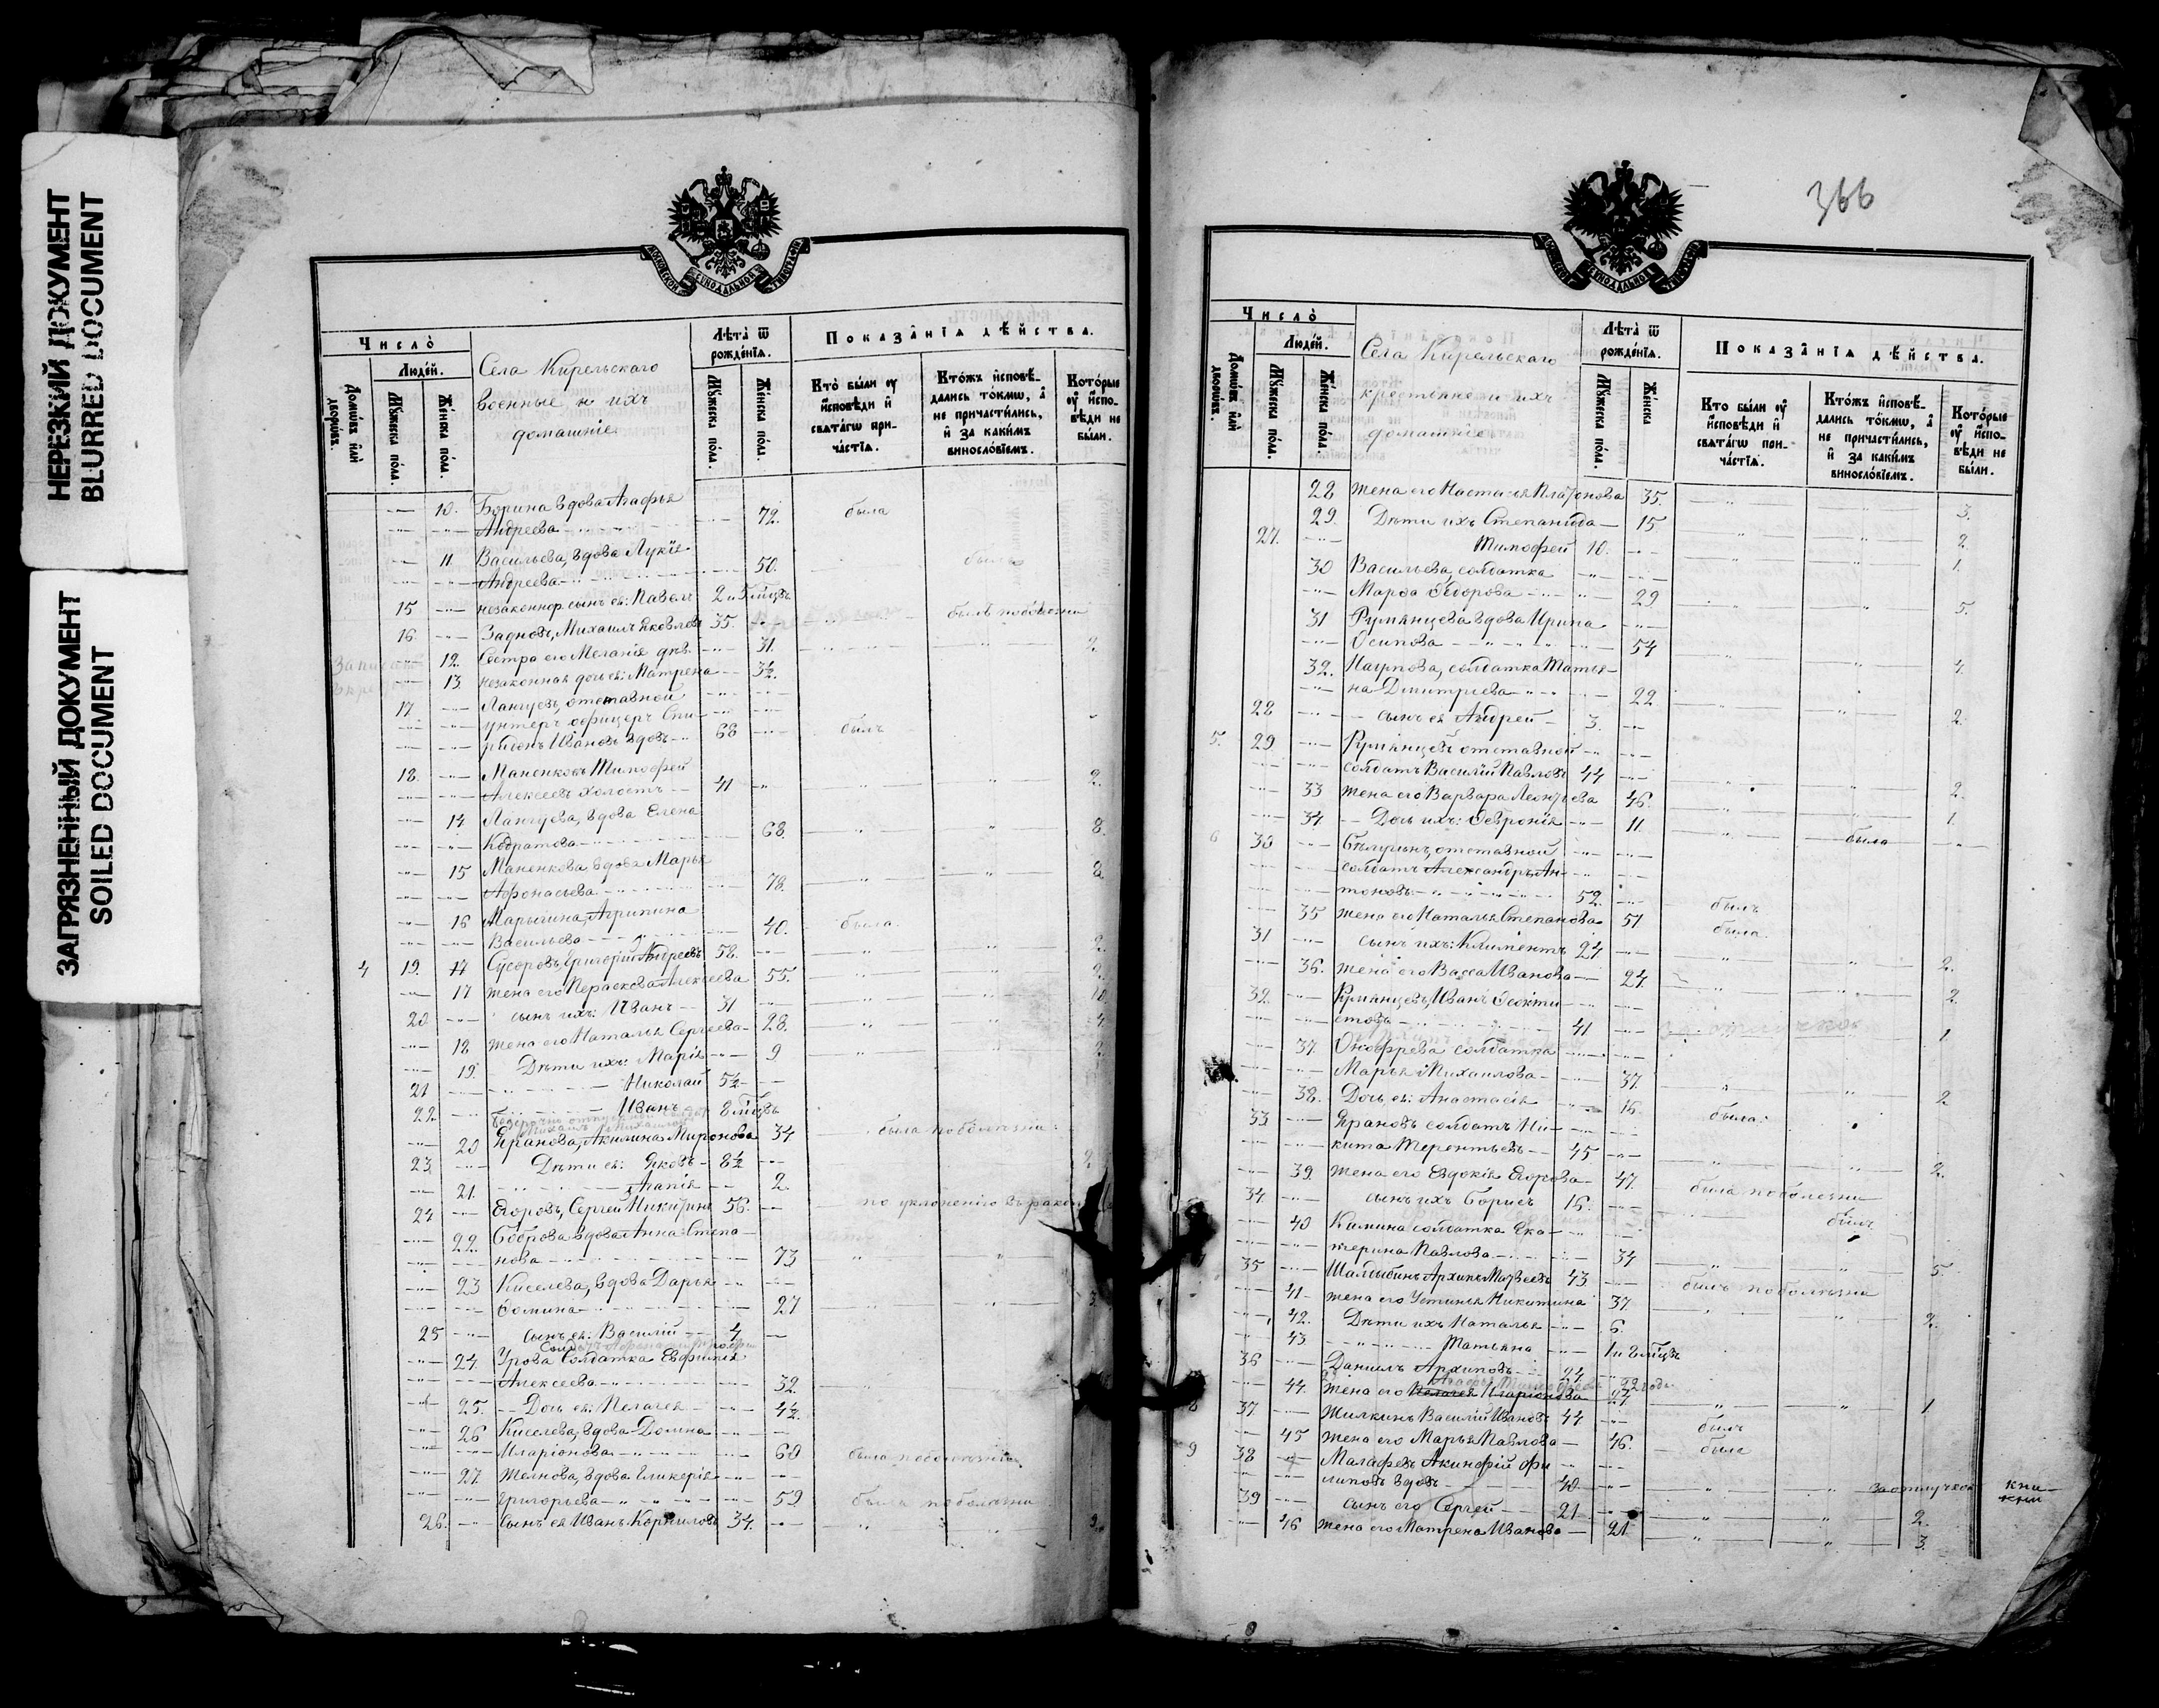 НЕРЕЗКИЙ ДОКУМЕНТ
BLURRED DOCUMENT
ЗАГРЯЗНЕННЫЙ ДОКУМЕНТ
SOILED DOCUMENT
МОСКОВСКОЙ СѴНОДАЛЬНОЙ ТИПОГРАФІИ
Число̀
Люде́й.
Домѡ́въ и҆лѝ дворѡ́въ.
Мꙋ́жеска по́ла.
Же́нска по́ла.
Села Кирельскаго
военные и ихъ
домашніе
Лѣта̀ ѿ рожде́нїѧ.
Мꙋ́жеска по́ла.
Же́нска по́ла.
Показа̑нїѧ дѣ́йства.
Кто̀ бы́ли ᲂу҆ и҆сповѣ́ди и҆ свѧта́гѡ при-ча́стїѧ.
Кто́жъ и҆сповѣ́-дались то́кмѡ, а҆ не причасти́лись, и҆ за каки́мъ винослові́емъ.
Кото́рые ᲂу҆ и҆спо-вѣ́ди не бы́ли.
10. Борина вдова Агафья
Андреева 72. была
11 Васильева, вдова Лукія
Андреева 50. была
15 незаконнор. сынъ ея: Павелъ 2 и 5 мцвъ
16. Задновъ, Михаилъ Яковлевъ 35. былъ по болезни
12. Сестра его Меланія дѣв. 31. 2.
13. незаконная дочь ея: Матрена 3½.
17 Лангуевъ, отставной
унтеръ офицеръ Спи-
ридонъ Ивановъ вдовъ 68 былъ
18. Маненковъ Тимофей
Алексеевъ холостъ 41 2.
14 Лангуева, вдова Елена
Кодратова 68. 8.
15 Маненкова вдова Марья
Афонасьева 78. 2.
16 Марыгина, Агрипина
Васильева 40. была.
4 19. Сусоровъ, Григорій Андреевъ 58. 2.
17 жена его Пераскова Алексеева 55. 2.
20 сынъ ихъ: Иванъ 31 10.
18 жена его Наталья Сергеева 28. 4.
19. Дѣти ихъ: Марія 9 2.
21 Николай 5½
22. Иванъ 8 мцвъ
20 Еранова, Акилина Миронова 34 была по болѣзни
23 Дѣти ея: Яковъ 8½ 2.
21. Агапія 2.
24 Егоровъ, Сергей Никитинъ 56. по уклоненію въ раскол
22. Боброва вдова Анна Степа-
нова 73
23 Киселева, вдова Дарья
Фомина 27 3.
25 сынъ ея: Василій 4.
24. Урова Солдатка Евфимія
Алексеева 32.
25. Дочь ея: Пелагея 4½.
26 Киселева, вдова Домна
Иларіонова 60 была по болѣзни
27. Желнова, вдова Гликерія
Григорьева 59 была по болезни
26. сынъ ея Иванъ Корниловъ 34. 2.
366
МОСКОВСКОЙ СѴНОДАЛЬНОЙ ТИПОГРАФІИ
Число̀
Люде́й.
Домѡ́въ и҆лѝ дворѡ́въ.
Мꙋ́жеска по́ла.
Же́нска по́ла.
Села Кирельскаго
крестьяне и ихъ
домашніе
Лѣта̀ ѿ рожде́нїѧ.
Мꙋ́жеска по́ла.
Же́нска
Показа̑нїѧ дѣ́йства.
Кто̀ бы́ли ᲂу҆ и҆сповѣ́ди и҆ свѧта́гѡ при-ча́стїѧ.
Кто́жъ и҆сповѣ́-дались то́кмѡ, а҆ не причасти́лись, и҆ за каки́мъ винослові́емъ.
Кото́рые ᲂу҆ и҆спо-вѣ́ди не бы́ли.
28 жена его Настасья Платонова 35. 3.
29. Дѣти ихъ Степанида 15. 2
27. Тимофей 10. 1.
30 Васильева, солдатка
Марфа Федорова 29 5.
31 Румянцева вдова Ирина
Осипова 54 4.
32. Наумова, солдатка Татья-
на Дмитріева 22 2.
28 сынъ ея Андрей 3.
5. 29 Румянцевъ отставной
солдатъ Василій Павловъ 44 2.
33 жена его Варвара Леонтьева 46. 1.
34 Дочь ихъ: Февронія 11. была
6 30 Бѣлугинъ, отставной
солдатъ Александръ Ан-
тоновъ 52. былъ
35 жена его Наталья Степанова 51 была.
31 сынъ ихъ: Климентъ 24 2.
36. жена его Васса Иванова 24. 2.
32. Румянцевъ, Иванъ Феокти-
стовъ 41 1
37. Онофрева солдатка
Марья Михаилова 37. 2
38. Дочь ея: Анастасія 16. была.
33 Ерановъ солдатъ Ни-
кита Терентьевъ 45 2.
39. жена его Евдокія Егорова 47. была по болезни
34. сынъ ихъ Борисъ 16. былъ
40 Килина солдатка Ека-
терина Павлова 34 5.
35 Шалдыбинъ Архипъ Матвеевъ 43 былъ по болезни
41 жена его Устинья Никитина 37. 2.
42. Дѣти ихъ Наталья 6.
43. Татьяна 1 и 2 мцвъ
36 Даниилъ Архиповъ 24
44. жена его Пелагея Иларіонова 24. 1
8 37. Жилкинъ Василій Ивановъ 44 былъ
45 жена его Марья Павлова 46. была
9 38 Малафевъ Акинфій Фи-
липовъ вдовъ 40. за отлучкой
39 сынъ его Сергей 21 2.
46 жена его Матрена Иванова 21 3.